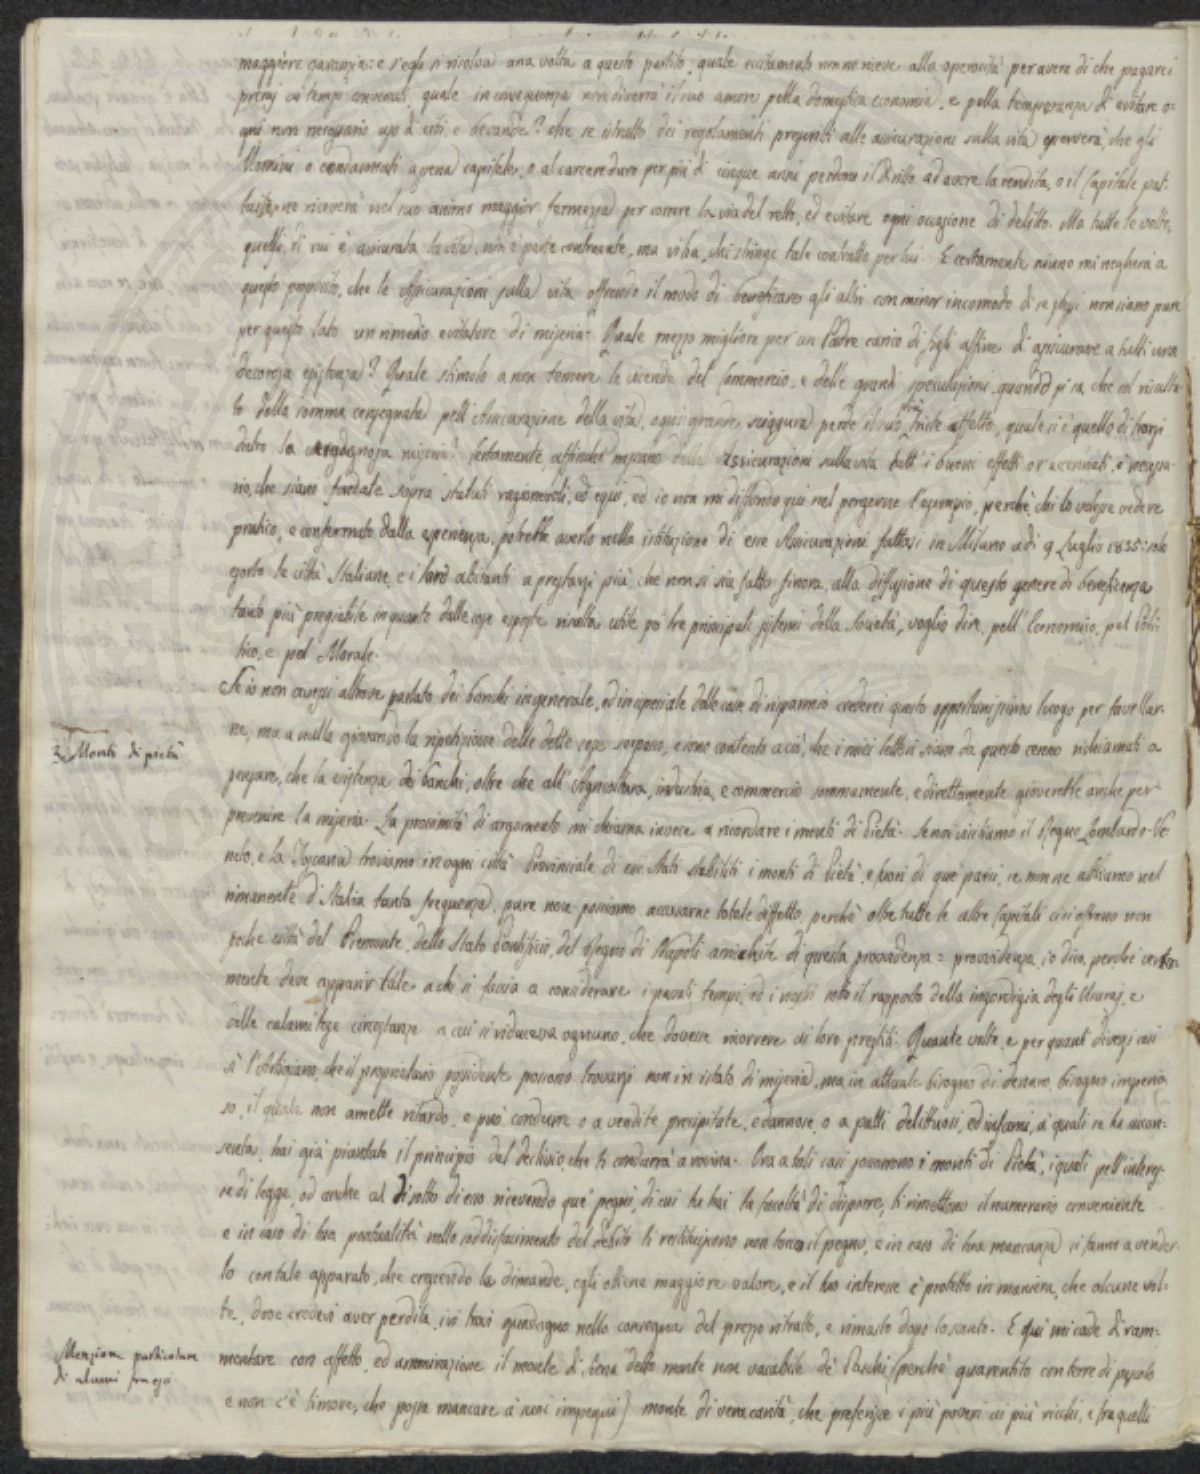 maggiore garanzia: e s'egli si risolva una volta a questo partito, quale eccitamento non ne riceve alla operosità per avere di che pagare i
premj ai tempi convenuti, quale in conseguenza non diverrà il suo amore pella domestica economia, e pella temperanza d'evitare o=
gni non necessario uso di cibi, e bevande? che se istrutto dei regolamenti prefissi alle assicurazioni sulla vita osserverà, che gli
Uomini o condannati a pena capitale, o al carcere duro per più di cinque anni perdono il dritto ad avere la rendita, o il Capitale pat=
tuito, ne riceverà nel suo animo maggior fermezza per correre la via del retto, ed evitare ogni occasione di delitto. Ma tutte le volte,
quelli, di cui è assicurata la vita, non è parte contraente, ma vi ha, chi stringe tale contratto per lui. E certamente niuno mi negherà a
questo proposito, che le Assicurazioni sulla vita offrendo il modo di beneficare gli altri con minor incomodo di se stessi non siano pure
per questo lato un rimedio evitatore di miseria. Quale mezzo migliore per un Padre carico di figli affine di assicurare a tutti una
decorosa esistenza? Quale stimolo a non temere le vicende del Commercio, e delle grandi speculazioni, quando si sa, che col risulta=
to della somma consegnata pell'Assicurazione della vita, ogni grande sciagura perde il suo più triste effetto, quale si è quello di trarsi
dietro la vergognosa miseria? Certamente affinchè nascano dalle Assicurazioni sulla vita tutt'i buoni effetti or'accennati, è necessa=
rio, che siano fondate sopra statuti ragionevoli, ed equi, ed io non mi diffondo qui nel porgerne l'esempio, perchè, chi lo volesse vedere
pratico, e confermato dalla esperienza, potrebbe averlo nella istituzione di esse Assicurazioni fattasi in Milano adì 9 Luglio 1835: solo
esorto le città Italiane, e i loro abitanti a prestarsi più che non si sia fatto finora, alla diffusione di questo genere di beneficenza
tanto più pregiabile inquanto dalle cose esposte risulta utile pei tre principali sistemi della Società, voglio dire, pell'Economico, pel Poli=
tico, e pel Morale.
Se io non avessi altrove parlato dei banchi in generale, ed in ispeciale delle casse di risparmio crederei questo opportunissimo luogo per favellar=
ne, ma a nulla giovando la ripetizione delle dette cose, sorpasso, e sono contento a ciò, che i miei lettori siano da questo cenno richiamati a
3. Monti di pietà
pensare, che la esistenza dei banchi, oltre che all'Agricoltura, industria, e commercio sommamente, e direttamente gioverebbe anche per
prevenire la miseria. La prossimità di argomento mi chiama invece a ricordare i monti di Pietà. Se noi visitiamo il Regno Lombardo-Ve=
neto, e la Toscana troviamo in ogni città Provinciale di essi Stati stabiliti i monti di Pietà, e fuori di que' paesi, se non ne abbiamo nel
rimanente d'Italia tanta frequenza, pure non possiamo accusarne totale diffetto, perchè oltre tutte le altre Capitali ci si offrono non
poche città del Piemonte, dello Stato Pontificio, del Regno di Napoli arricchite di questa provvidenza = provvidenza, io dico, perchè certa=
mente deve apparir tale a chi si faccia a considerare i passati tempi, ed i nostri sotto il rapporto della ingordigia degli Usuraj, e
delle calamitose circostanze a cui si riducessa ognuno, che dovesse ricorrere ai loro prestiti. Quante volte, e per quanti diversi casi
sì l'Artigiano, che il proprietario possidente possono trovarsi non in istato di miseria, ma in attuale bisogno di denaro, bisogno imperio=
so, il quale non amette ritardo, e può condurre o a vendite precipitate, e dannose, o a patti delittuosi, ed infami, ai quali se ha accon=
sentito, hai già piantato il principio del declivio che ti condurrà a rovina. Ora a tali casi soccorrono i monti di Pietà, i quali pell'interes=
se di legge, od anche al disotto di esso ricevendo que' pegni, di cui tu hai la facoltà di disporre, ti rimettono il numerario conveniente
e in caso di tua puntualità nello soddisfacimento del debito ti restituiscono non tocco il pegno, e in caso di tua mancanza si fanno a vender=
lo con tale apparato, che crescendo le dimande, egli ottiene maggiore valore, e il tuo interesse è protetto in maniera, che alcune vol=
te, dove credevi aver perdita, ivi trovi guadagno nella consegna del prezzo ritratto, e rimasto dopo lo sconto. E qui mi cade di ram=
Menzione particolare
di alcuni fra essi
mentare con affetto, ed ammirazione il monte di Siena detto monte non vacabile de' Paschi (perchè guarentito con terre di pascolo
e non c'è timore, che possa mancare a' suoi impegni) monte di vera carità, che preferisce i più poveri ai più ricchi, e fra quelli